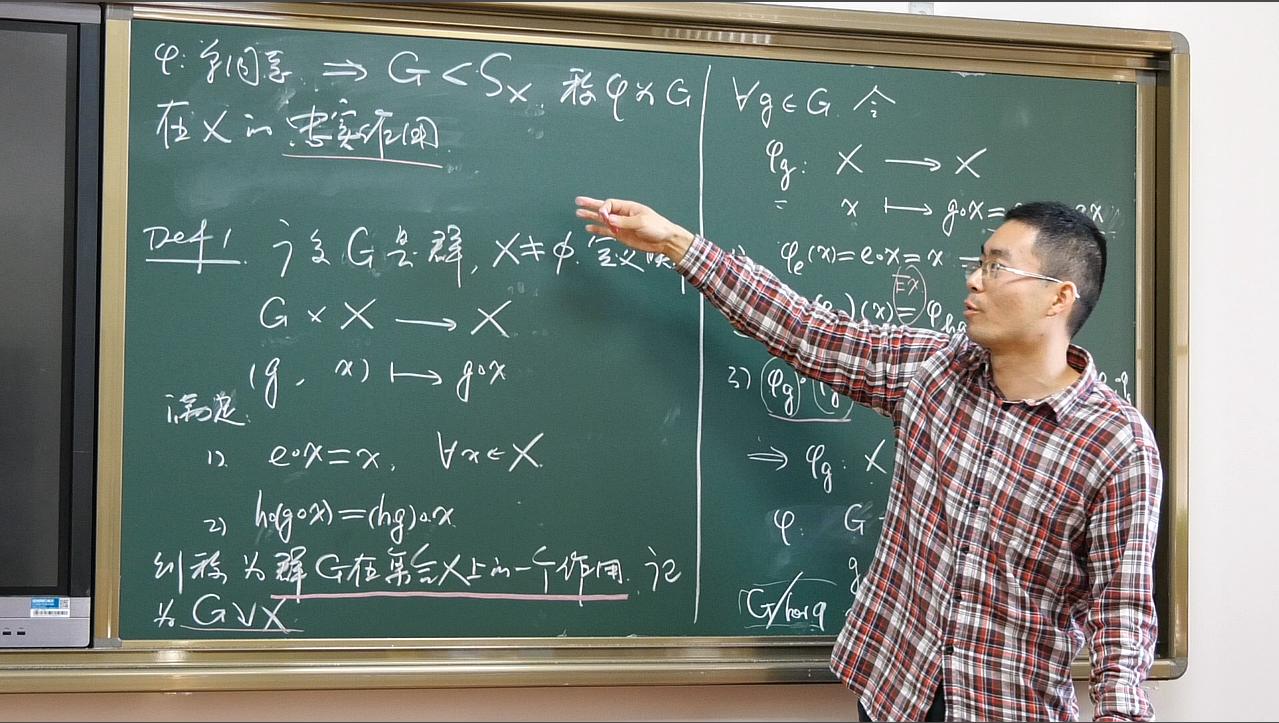 φ: 单同态 ⇒ G < S_X 称φ为G
在X的忠实作用.
Def 1 设G是群, X≠∅. 定义映
G × X ⟶ X
(g, x) ⟼ g∘x
满足:
1). e∘x = x, ∀x∈X.
2) h∘(g∘x) = (hg)∘x.
则称为群G在集合X上的一个作用. 记
为 G∨X
∀g∈G. 令
φ_g: X ⟶ X
x ⟼ g∘x =
φ_e(x) = e∘x = x
(x) = φ_hg
Ex
3) φ_g
⇒ φ_g: X
φ: G
g
G/kerφ